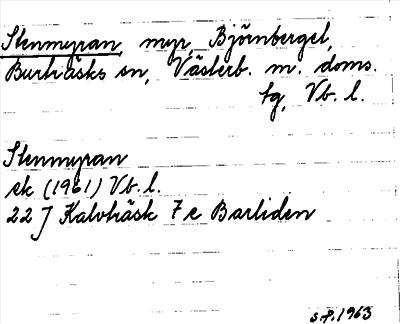 Stenmyran, myr, Björnberget,
Burträsks sn, Västerb. m. doms.
tg, Vb. l.
Stenmyran
ek (1961) Vb. l.
22 J Kalvträsk 7 e Barliden
S.P. 1963